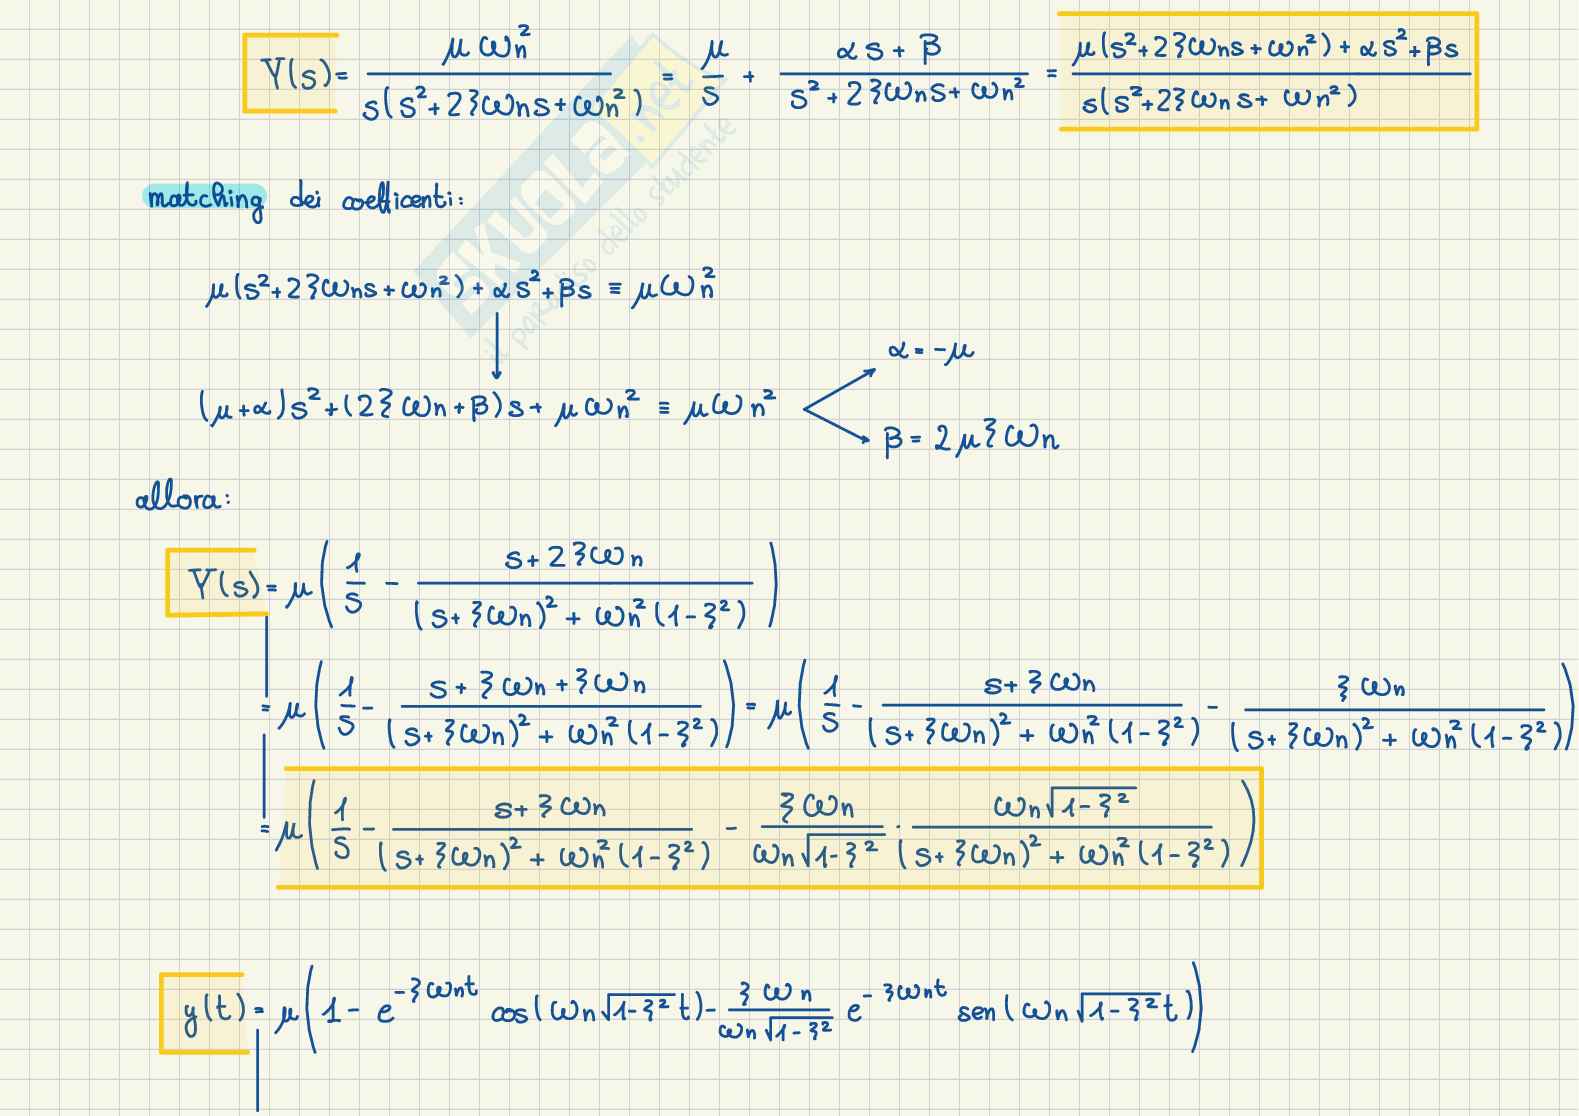 Y(s) = μωn² / s(s²+2ξωns+ωn²) = μ/s + (αs+β) / (s²+2ξωns+ωn²) = (μ(s²+2ξωns+ωn²)+αs²+βs) / s(s²+2ξωns+ωn²)
SKUOLA.net
il paradiso dello studente
matching dei coefficenti:
μ(s²+2ξωns+ωn²)+αs²+βs ≡ μωn²
α = -μ
(μ+α)s²+(2ξωn+β)s+μωn² ≡ μωn²
β = 2μξωn
allora:
Y(s) = μ( 1/s - (s+2ξωn) / ((s+ξωn)²+ωn²(1-ξ²)) )
= μ( 1/s - (s+ξωn+ξωn) / ((s+ξωn)²+ωn²(1-ξ²)) ) = μ( 1/s - (s+ξωn) / ((s+ξωn)²+ωn²(1-ξ²)) - ξωn / ((s+ξωn)²+ωn²(1-ξ²)) )
= μ( 1/s - (s+ξωn) / ((s+ξωn)²+ωn²(1-ξ²)) - ξωn / (ωn√(1-ξ²)) · ωn√(1-ξ²) / ((s+ξωn)²+ωn²(1-ξ²)) )
y(t) = μ( 1 - e^(-ξωnt) cos(ωn√(1-ξ²)t) - ξωn / (ωn√(1-ξ²)) e^(-ξωnt) sen(ωn√(1-ξ²)t) )